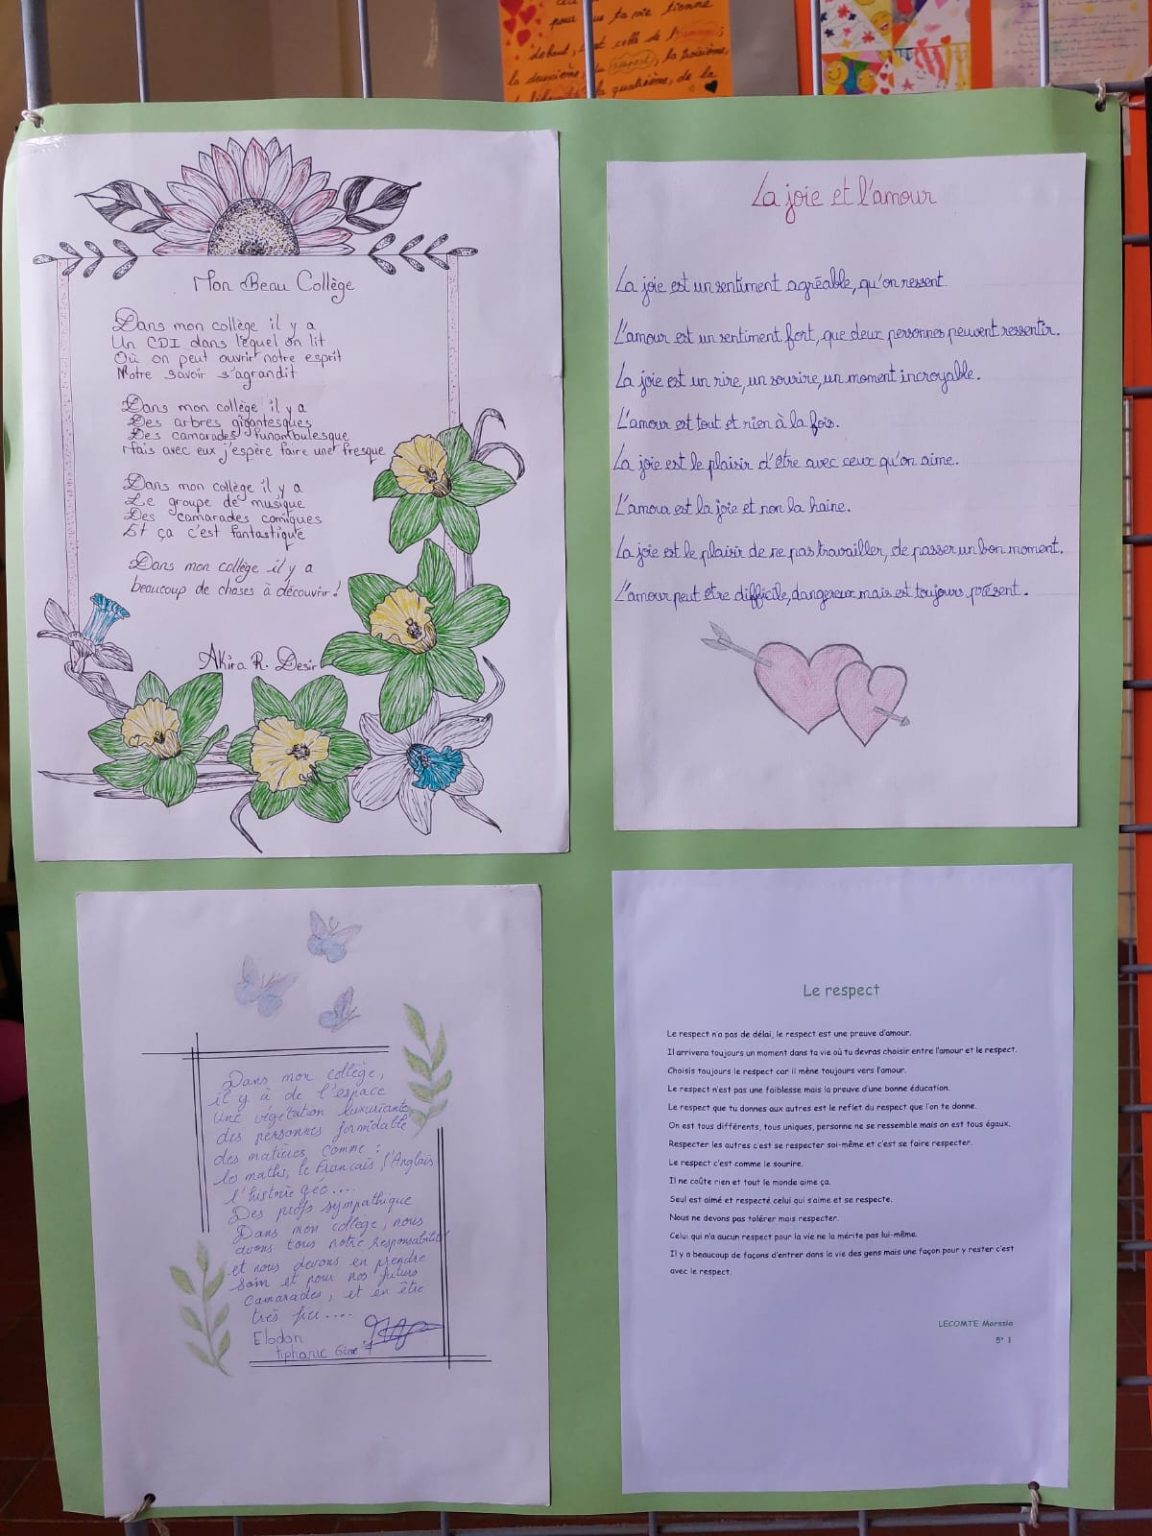 pour
ta vie tienne
debout, c'est celle de l'
la deuxième, du respect, la troisième,
la quatrième, de la
Mon Beau Collège
Dans mon collège il y a
Un CDI dans lequel on lit
Où on peut ouvrir notre esprit
Notre savoir s'agrandit
Dans mon collège il y a
Des arbres gigantesques
Des camarades funambulesque
Mais avec eux j'espère faire une fresque
Dans mon collège il y a
Le groupe de musique
Des camarades comiques
Et ça c'est fantastique
Dans mon collège il y a
beaucoup de choses à découvrir !
Akira R. Desir
La joie et l'amour
La joie est un sentiment agréable, qu'on ressent
L'amour est un sentiment fort, que deux personnes peuvent ressentir.
La joie est un rire, un sourire, un moment incroyable.
L'amour est tout et rien à la fois.
La joie est le plaisir d'être avec ceux qu'on aime.
L'amour est la joie et non la haine.
La joie est le plaisir de ne pas travailler, de passer un bon moment.
L'amour peut être difficile, dangereux mais est toujours présent.
Dans mon collège,
il y à de l'espace
Une végétation luxuriante
des personnes formidable
des matières comme :
les maths, le Français, l'Anglais
l'histoire géo....
Des profs sympathique
Dans mon collège, nous
avons tous notre responsabilité
et nous devons en prendre
soin et pour nos futurs
Camarades, et en être
très fier....
Elodon
tiphanie 6ème 7
Le respect
Le respect n'a pas de délai, le respect est une preuve d'amour.
Il arrivera toujours un moment dans ta vie où tu devras choisir entre l'amour et le respect.
Choisis toujours le respect car il mène toujours vers l'amour.
Le respect n'est pas une faiblesse mais la preuve d'une bonne éducation.
Le respect que tu donnes aux autres est le reflet du respect que l'on te donne.
On est tous différents, tous uniques, personne ne se ressemble mais on est tous égaux.
Respecter les autres c'est se respecter soi-même et c'est se faire respecter.
Le respect c'est comme le sourire.
Il ne coûte rien et tout le monde aime ça.
Seul est aimé et respecté celui qui s'aime et se respecte.
Nous ne devons pas tolérer mais respecter.
Celui qui n'a aucun respect pour la vie ne la mérite pas lui-même.
Il y a beaucoup de façons d'entrer dans la vie des gens mais une façon pour y rester c'est
avec le respect.
LECOMTE
5e 1